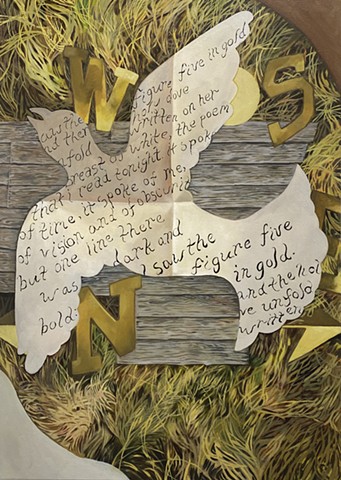 W
S
N
figure five in gold
dove
written on her
unfold
breast of white the poem
that I read tonight it spoke
of time, it spoke of me,
of vision and of obscurity
but one line there
was dark and
bold:
I saw the
figure five
in gold.
and the
ve unfold
written